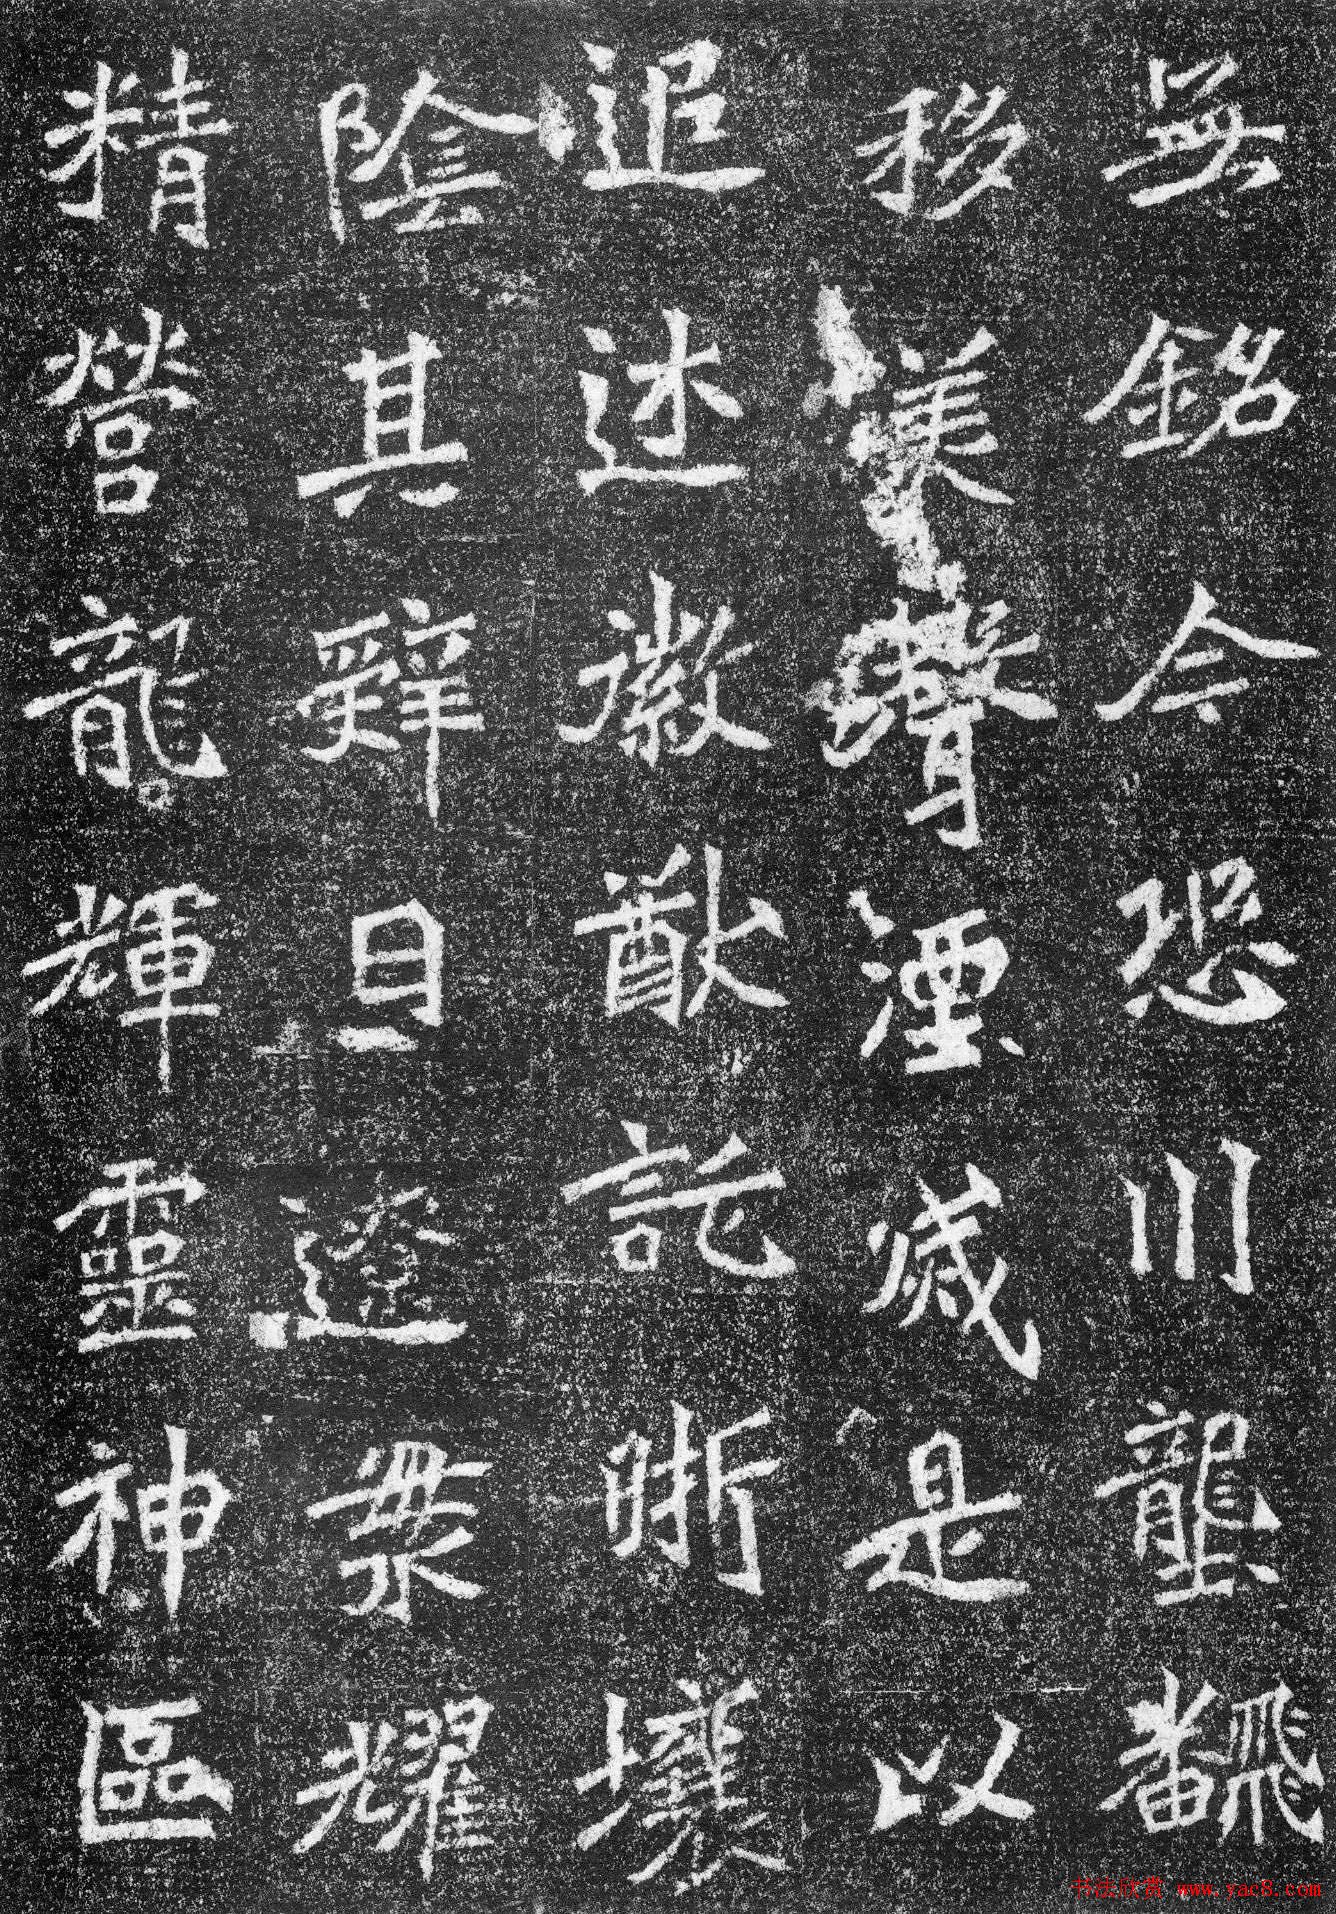 無銘今恐川壟飜
移美聲湮滅是以
追述徽猷託晣壤
陰其辭曰遼衆耀
精營龍輝靈神區
书法欣赏 www.yac8.com